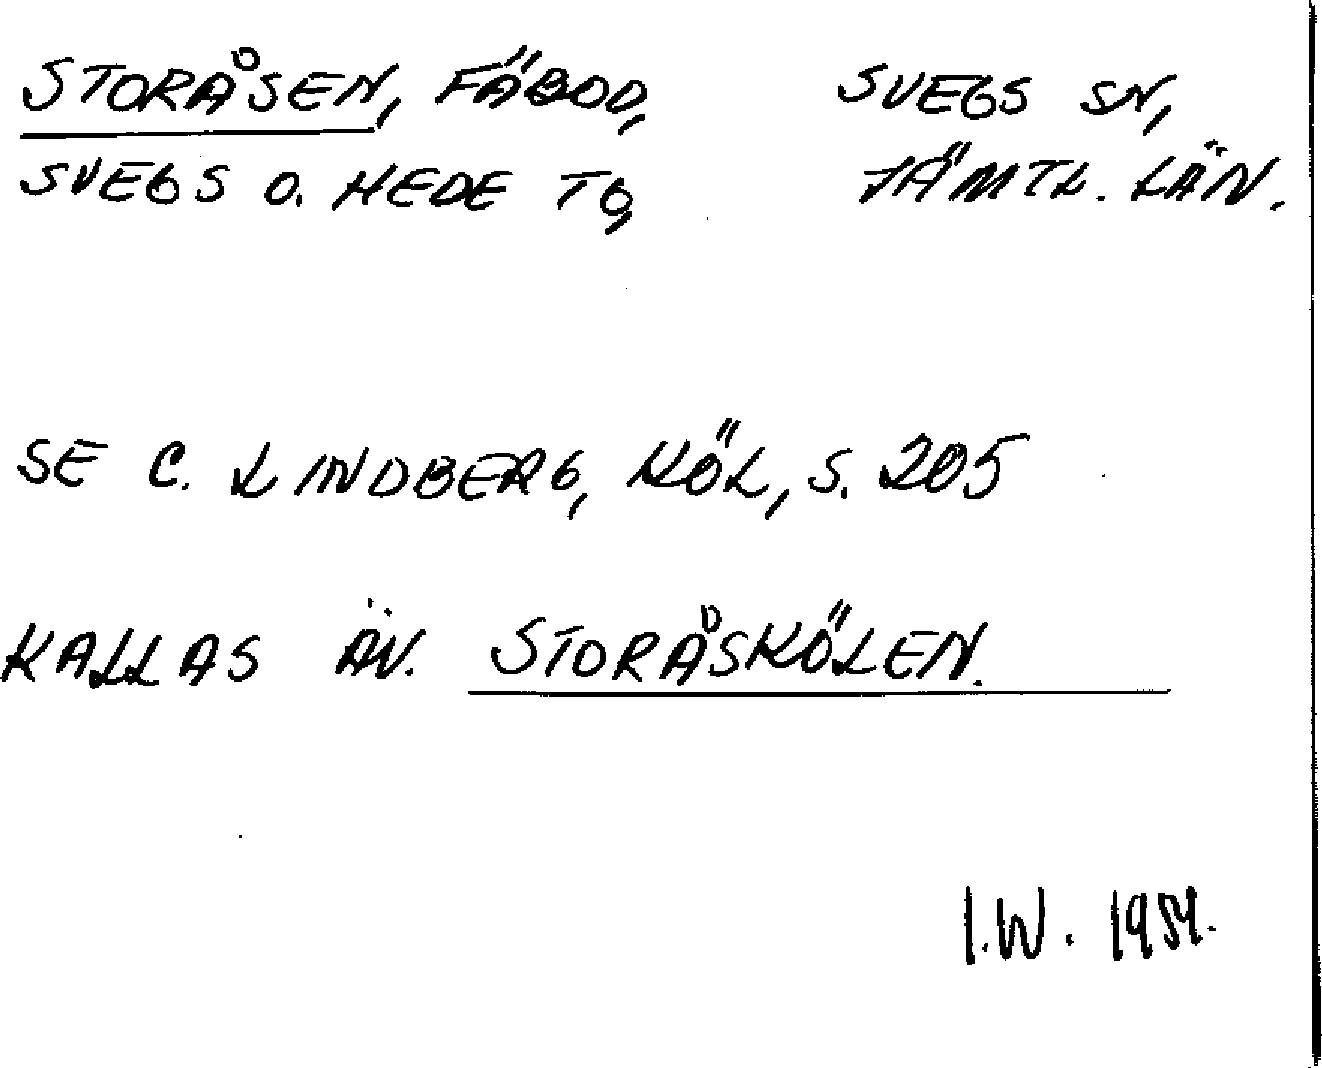 STORÅSEN, FÄBOD, SVEGS SN,
SVEGS O. HEDE TG, JÄMTL. LÄN.
SE C. LINDBERG, KÖL, S. 205
KALLAS ÄV. STORÅSKÖLEN.
I.W. 1954.